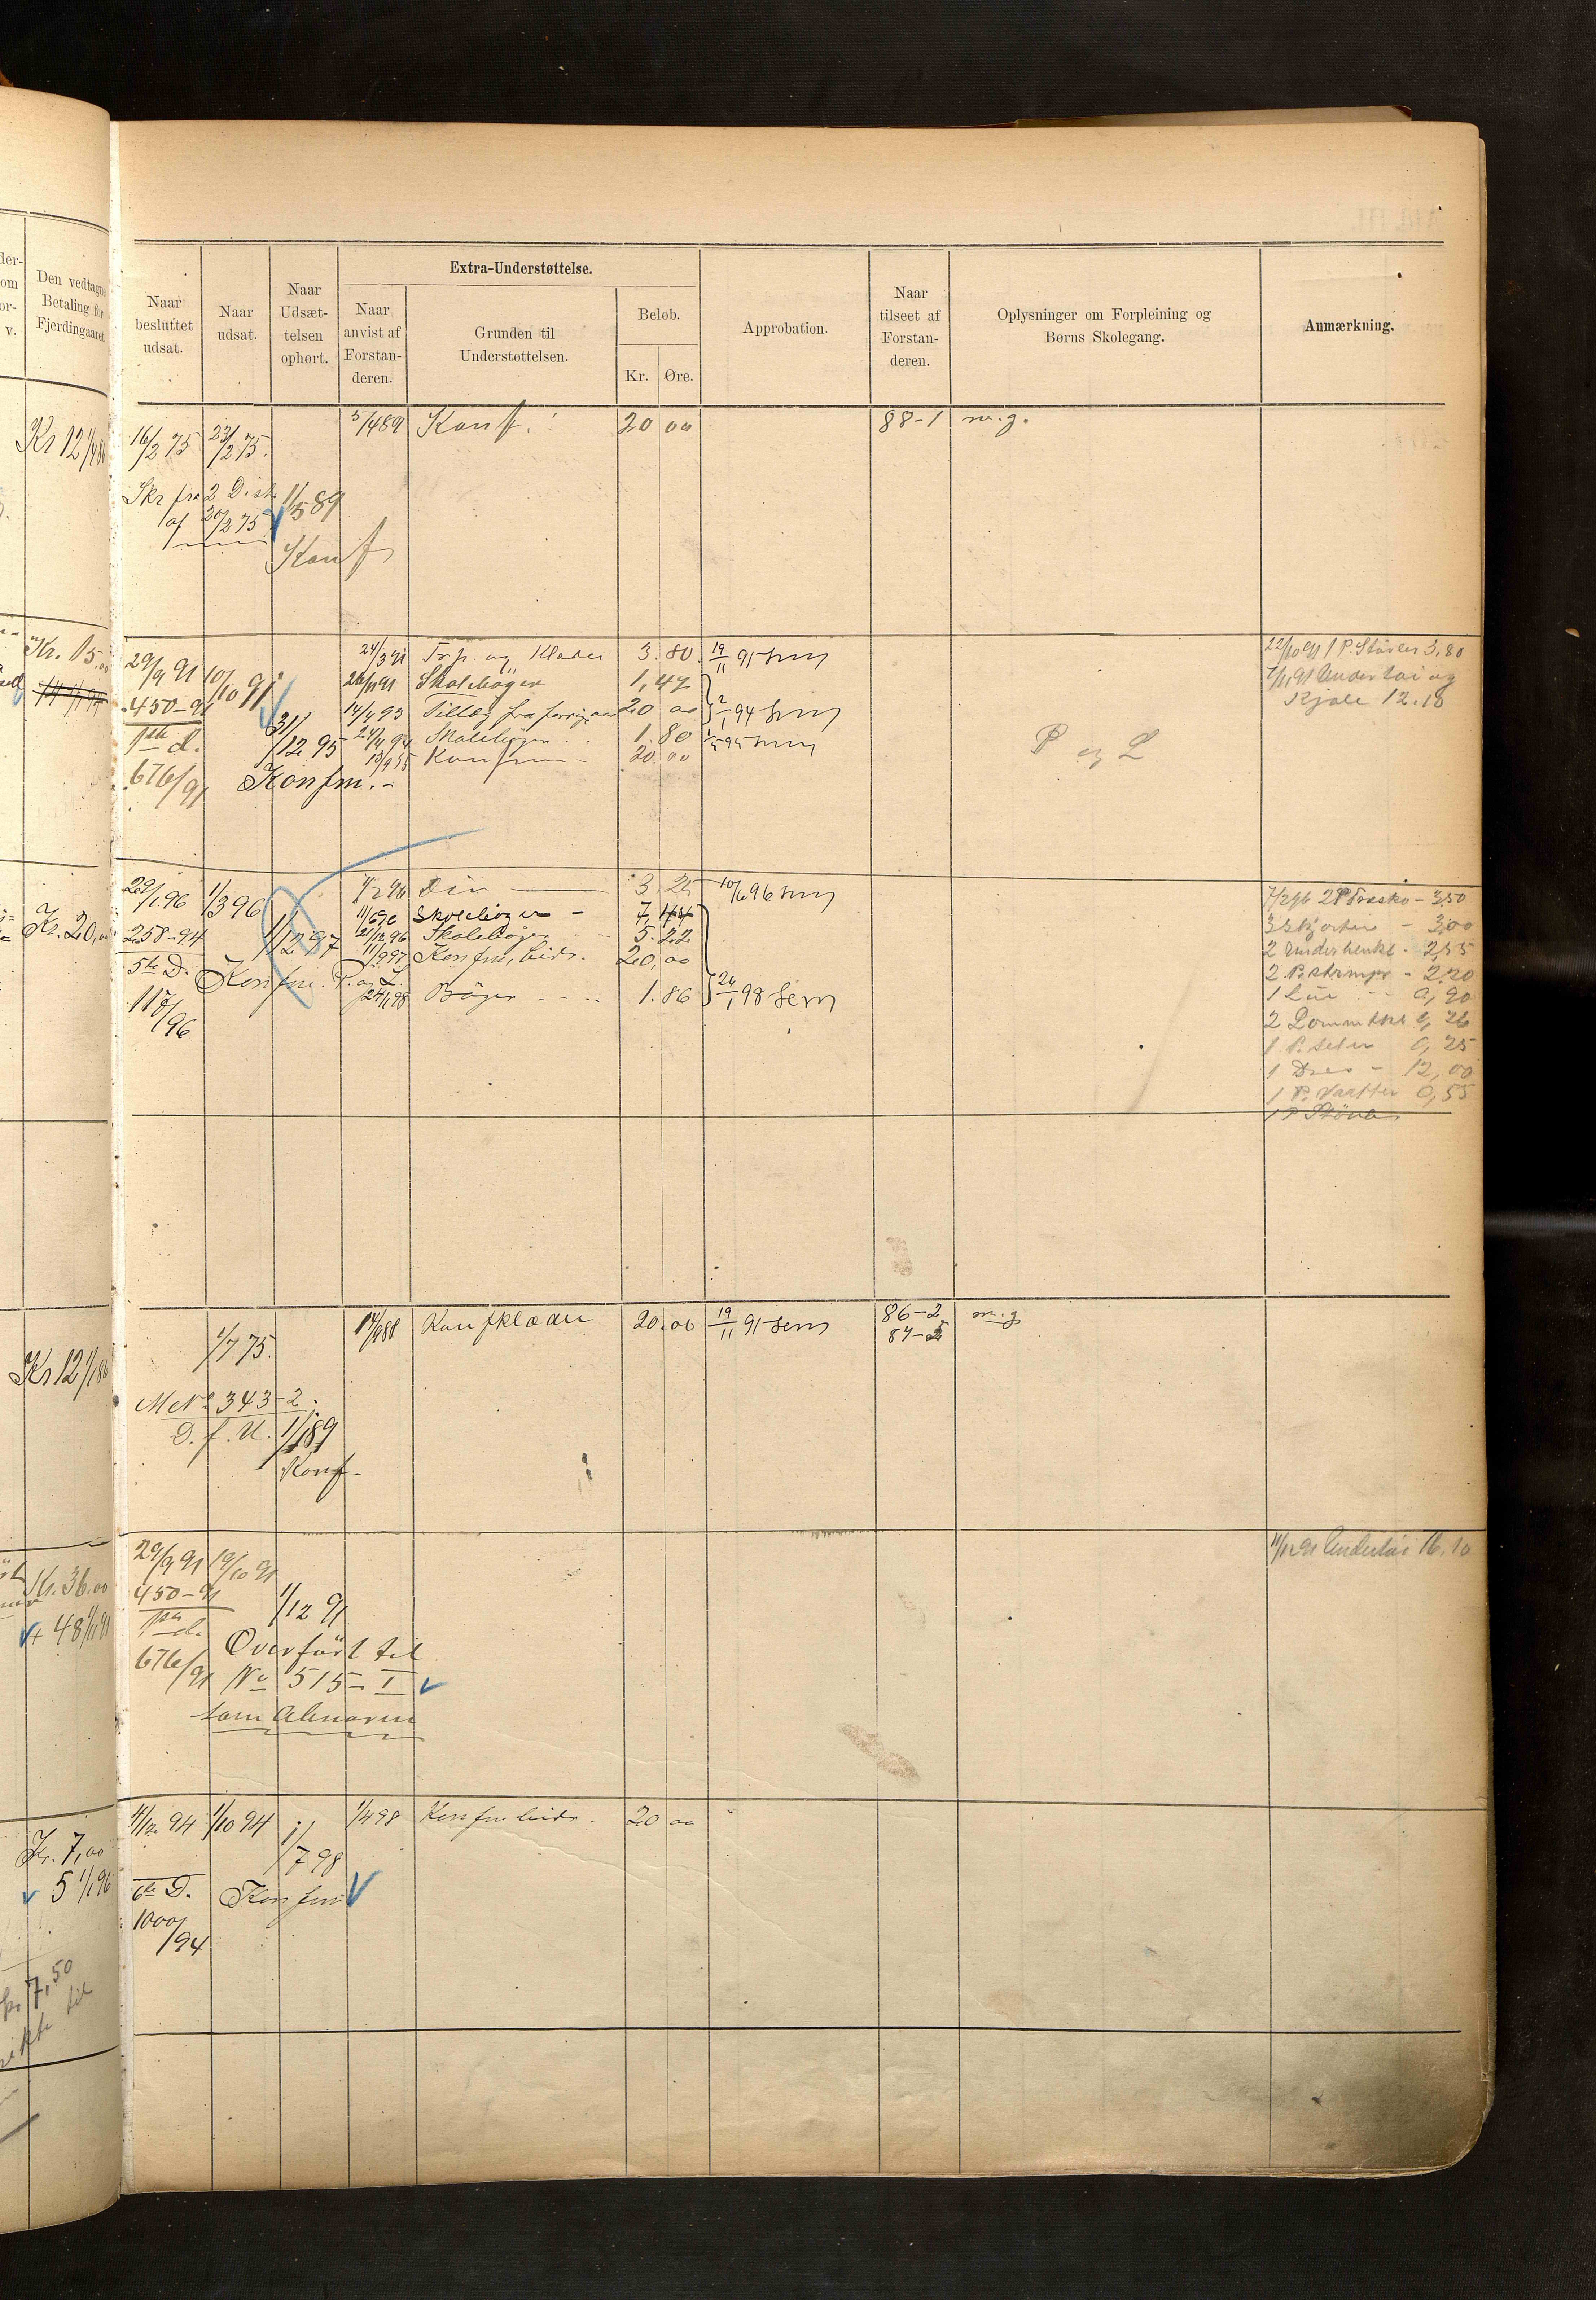 Den vedtagne
Betaling for
Fjerdingaaret.
Naar
besluttet
udsat.
Naar
udsat.
Naar
Udsæt-
telsen
ophørt.
Extra-Understøttelse.
Naar
anvist af
Forstan-
deren.
Grunden til
Understøttelsen.
Beløb.
Kr. Øre.
Approbation.
Naar
tilseet af
Forstan-
deren.
Oplysninger om Forpleining og
Børns Skolegang.
Anmærkning.
Kr 12 1/4 86
16/2 75 23/2 75. 5/4 89 Konf. 20 00 88-1 m.g.
Skr fra 2 Dist 1/5 89
af 20/2 75
Konf
Kr. 15,00
29/9 91 10/10 91 24/3 91 Trp. og Klæder 3.80 19/11 91 Sem
450-91 Skolebøger 1,47
14/4 93 Tillæg fra forrige aar 20 00 2/1 94 Sem
1ste d. 31/12 95 Skolebøger 1.80
Konfm 20.00
676/91 Konfm.-
P og L
22/10 91 1 P. Støvler 3,80
Undertøi og
Kjole 12.18
Kr. 20,00
29/1 96 1/3 96 Div 3.25 10/6 96 Sem
258-94 1/12 97 Skolebøger - 7,44
21/12 96 Skolebøger 5.22
5te D. 11/9 97 Konfm, bidr. 20,00
Konfm. P. og L.
24/1 98 Bøger 1.86 24/1 98 Sem
118/96
2 P Træsko - 3,50
3 Skjorter - 3,00
2 Underbenkl - 2,55
2 P. Strømper - 2,20
1 Lue - 0,90
2 Lommetkl 0,26
1 P. Seler 0,25
1 Dres - 12,00
1 P. Vaatter 0,55
1 P Støvle
Kr 12 1/1 86
1/7 75. 14/9 88 Konfklæder 20.00 19/11 91 Sem 86-2 m.g
84-2
M No 343-2.
D. f. U. 1/1 89
Konf.
Kr. 36.00
+ 48 1/1 91
29/9 91 19/10 91
450-91 1/12 91
1ste d.
676/91 Overført til
No 515-I
som Almaren
11/12 91 Undertøi 16.10
Kr. 7,00
5 1/1 96
4/12 94 1/10 94 1/4 98 Konfmbidr. 20 00
1/7 98
6te D. Konfm
1000/94
Kr 7,50
ikke til